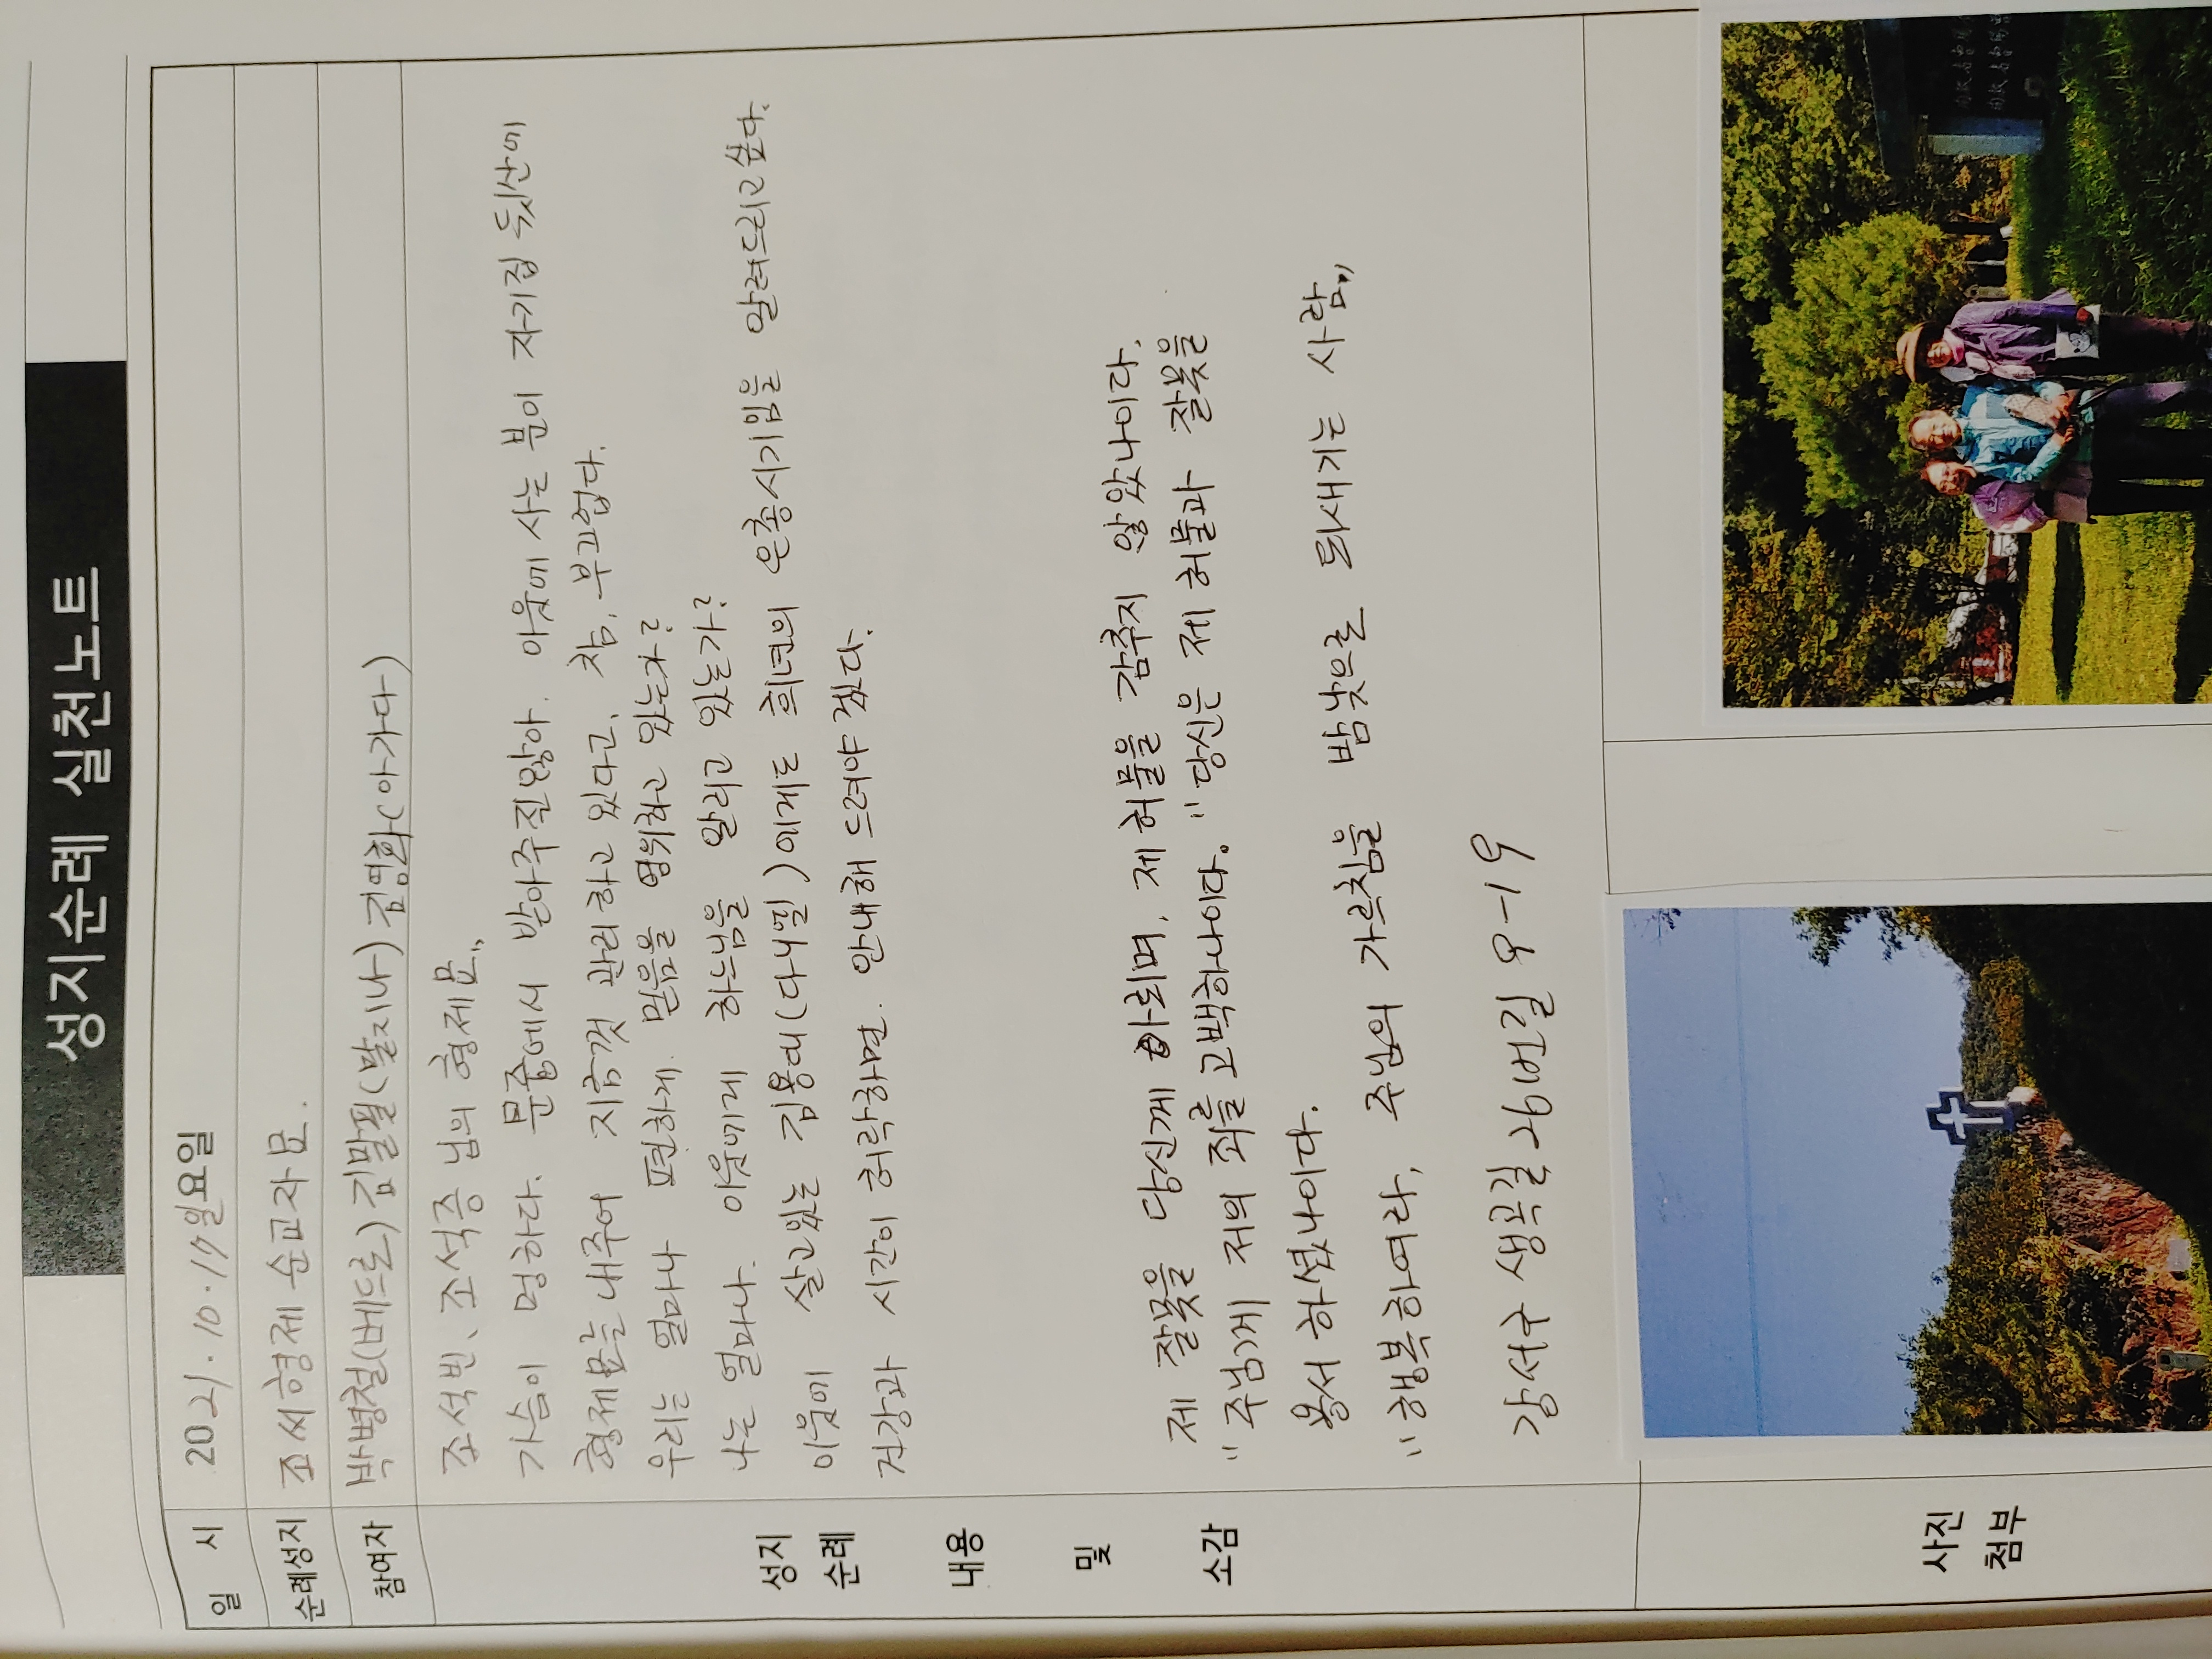 성지순례 실천노트
일 시
2021.10.17일요일
순례성지
조씨형제 순교자묘.
참여자
박병철(베드로) 김말필(말지나) 김영화(아가다)
조석빈、조석증 님의 형제묘,,
가슴이 멍하다. 문중에서 받아주질않아. 이웃에 사는 분이 자기집 뒷산에
형제묘를 내주어 지금껏 관리하고 있다고, 참, 부끄럽다.
우리는 얼마나 편하게. 믿음을 영위하고 있는가?
나는 얼마나. 이웃에게 하느님을 알리고 있는가?
이웃에 살고있는 김용대(다니엘)에게도 희년의 은총시기임을 알려드리고싶다.
건강과 시간이 허락하면. 안내해 드려야 겠다.
성지
순례
내용
및
소감
제 잘못을 당신께 아뢰며, 제 허물을 감추지 않았나이다.
"주님께 저의 죄를 고백하나이다." 당신은 제 허물과 잘못을
용서 하셨나이다.
"행복하여라, 주님의 가르침을 밤낮으로 되새기는 사람,,
강서구 생곡길 26번길 9-19
사진
첨부